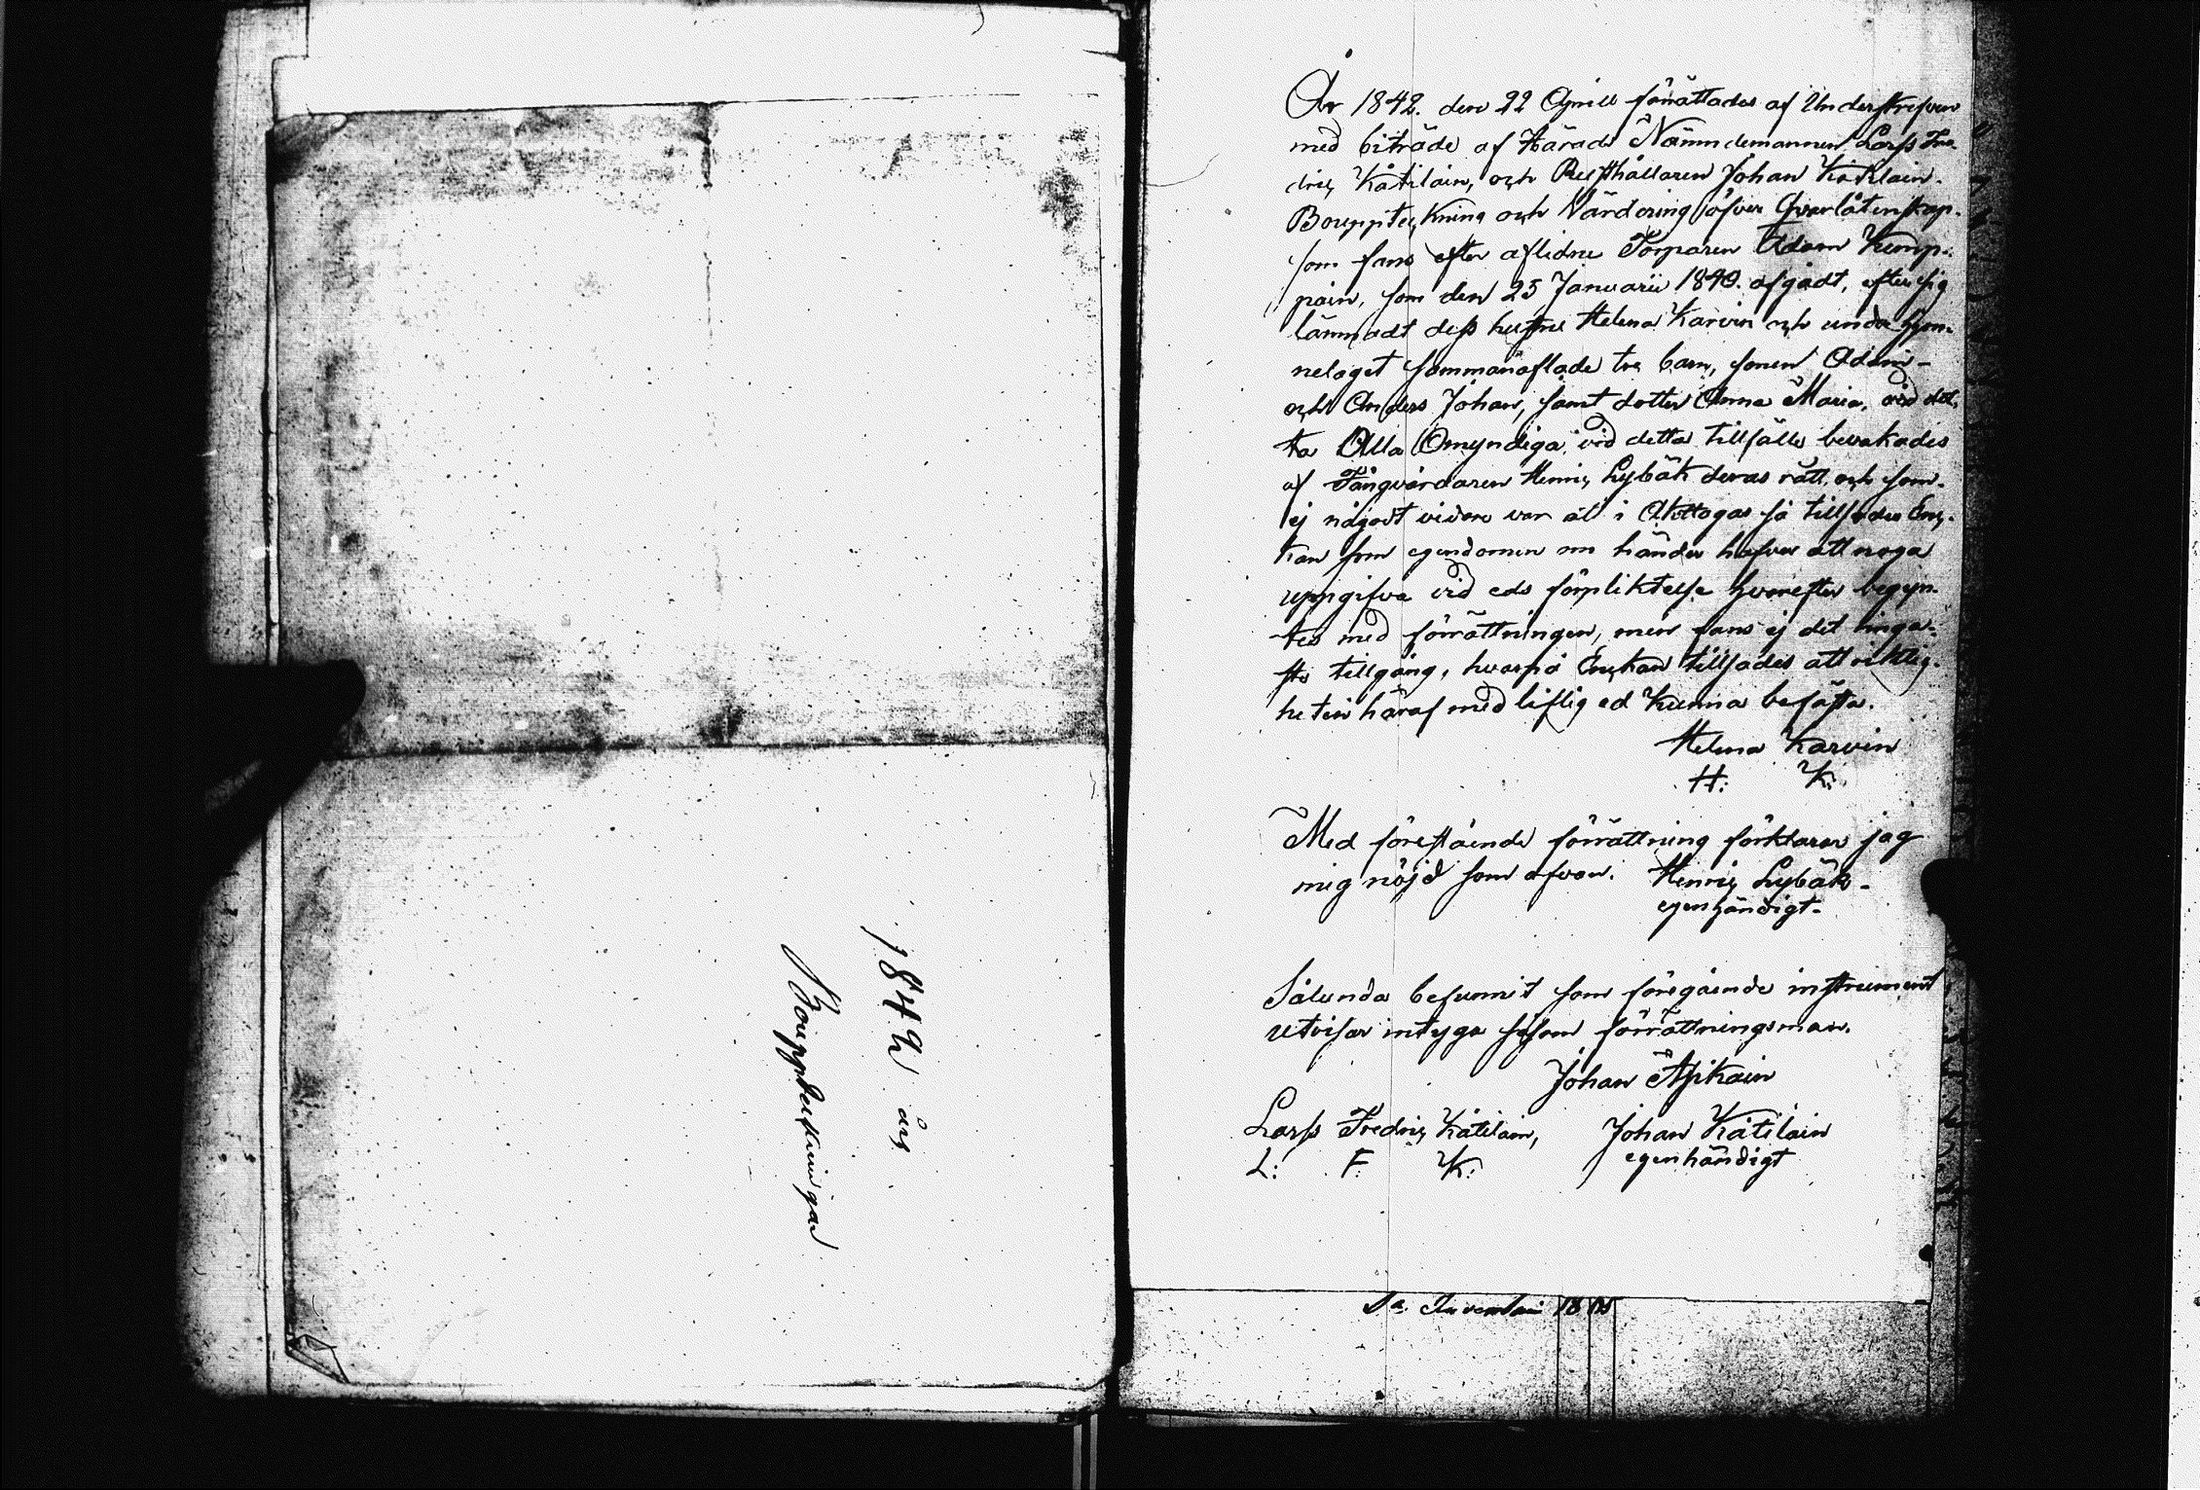 1842 års
Bouppteckningar
År 1842. den 22 April förrättades af Underskrifven
med biträde af Härads Nämndemannen Larss Fre
dric Kåtilain, och Rusthållaren Johan Kåtilain.
Bouppteckning och Värdering öfver Qvarlåtenskap.
som fans efter aflidne Torparen Adam Kemp-
pain, som den 25 Januarii 1840. afgådt, efter sig
lämnadt dess hustru Helena Karvin och under hjon-
nelaget sammanaflade tre barn, sonen Adam-
och Anders Johan, samt dotter Anna Maria, vid det-
ta Alla Omyndiga, vid detta tillfälle bevakades
af Fångvårdaren Henric Lybäk deras rätt, och som-
ej någodt vidare var at i Akttagas så tillsades Enc-
kan som egendomen om händer hafver att noga
uppgifva vid eds förpliktelse hvarefter begyn-
tes med förrättningen, men fans ej det ringa-
ste tillgång, hvarpå Enckan tillsades att riktig-
heten häraf med liflig ed kunna besästa.
Helena Karvin
H: K:
Med förestående förrättning förklarar jag
mig nöjd som ofvan. Henric Lybäk-
egenhändigt-
Sålunda befunnit som föregående instrument
utvisar intyga såsom förrättningsman.
Johan Äpikain
Larss Fredric Kåtilain, Johan Kåtilain
L: F: K: egenhändigt